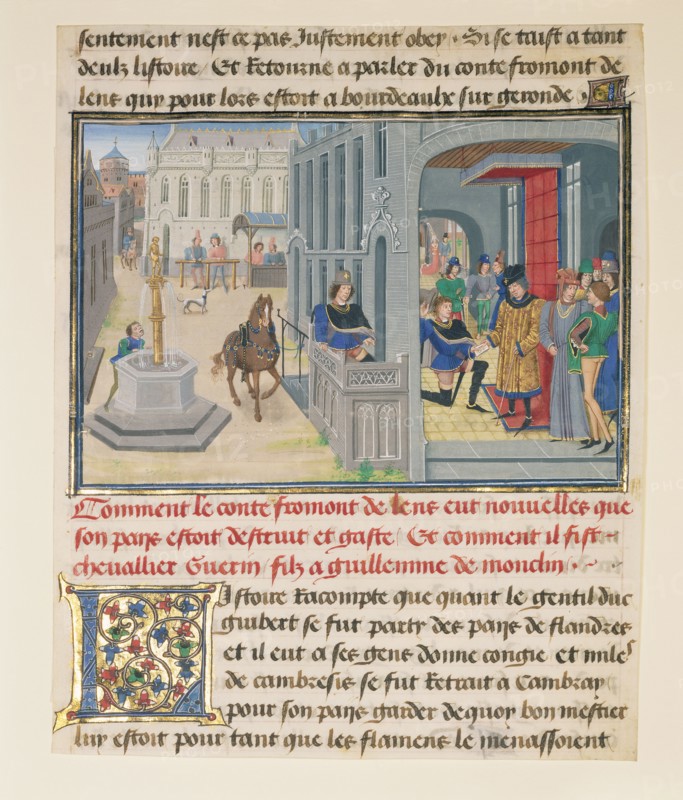 sentement nest ce pas Justement obey. Si se taist a tant
deulz listoire / Et Retourne a parler du conte fromont de
lens quy pour lors estoit a bourdeaulx sur geronde.
Comment le conte fromont de lens eut nouvelles que
son pays estoit destruit et gaste / Et comment il fist
chevallier Guerin / filz a guillemme de monclin.
Listoire Racompte que quant le gentil duc
guibert se fut party des pays de flandres
et il eut a ses gens donne congie et mile
de cambresis se fut Retrait a Cambray
pour son pays garder de quoy bon mestier
luy estoit pour tant que les flamens le menassoient